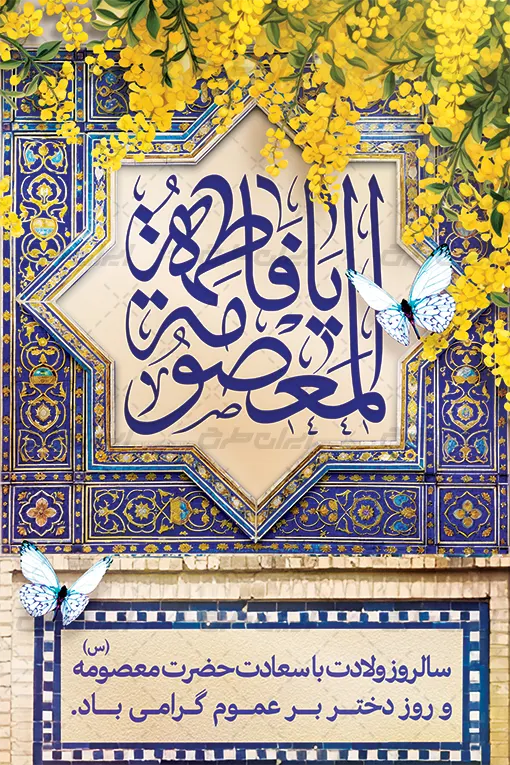 یا فاطمة المعصومة
سالروز ولادت با سعادت حضرت معصومه (س)
و روز دختر بر عموم گرامی باد.